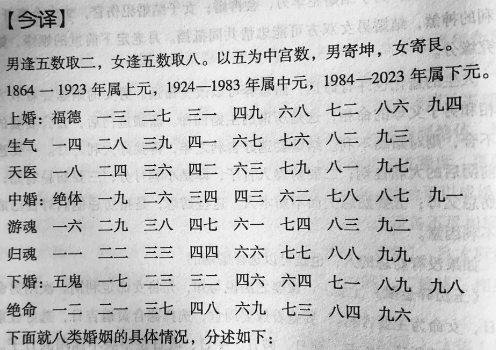 【今译】
男逢五数取二，女逢五数取八。以五为中宫数，男寄坤，女寄艮。
1864—1923年属上元，1924—1983年属中元，1984—2023年属下元。
上婚：福德 一三 二七 三一 四九 六八 七二 八六 九四
生气 一四 二八 三九 四一 六七 七六 八二 九三
天医 一八 二四 三六 四二 六三 七九 八一 九七
中婚：绝体 一九 二六 三四 四三 六二 七八 八七 九一
游魂 一六 二九 三八 四七 六一 七四 八三 九二
归魂 一一 二二 三三 四四 六六 七七 八八 九九
下婚：五鬼 一七 二三 三二 四六 六四 七一 八九 九八
绝命 一二 二一 三七 四八 六九 七三 八四 九六
下面就八类婚姻的具体情况，分述如下：